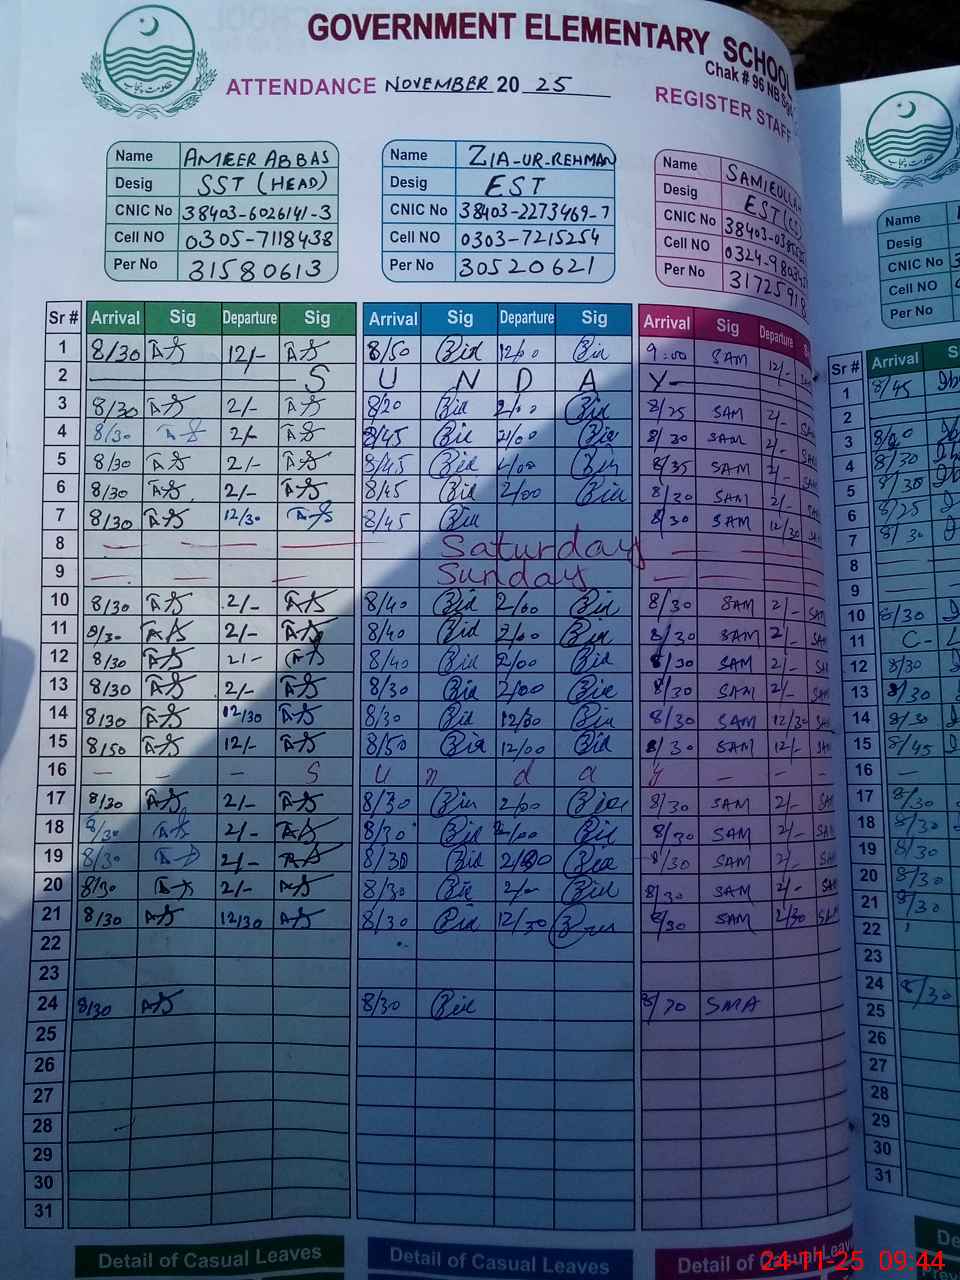 GOVERNMENT ELEMENTARY SCHOOL
Chak # 96 NB
ATTENDANCE NOVEMBER 20 25
REGISTER STAFF
Name AMEER ABBAS
Desig SST (HEAD)
CNIC No 38403-6026141-3
Cell NO 0305-7118438
Per No 31580613
Name ZIA-UR-REHMAN
Desig EST
CNIC No 38403-2273469-7
Cell NO 0303-7215254
Per No 30520621
Name SAMIEULLAH
Desig EST
CNIC No 38403-
Cell NO 0324-
Per No 3172591
Name
Desig
CNIC No
Cell NO
Per No
Sr # Arrival Sig Departure Sig Arrival Sig Departure Sig Arrival Sig Departure
1 8/30 AS 12/- AS 8/50 Zia 12/00 Zia 9:00 SAM 12/-
2 S U N D A Y
3 8/30 AS 2/- AS 8/20 Zia 2/00 Zia 8/25 SAM 2/-
4 8/30 AS 2/- AS 8/45 Zia 2/00 Zia 8/30 SAM 2/-
5 8/30 AS 2/- AS 8/45 Zia 2/00 Zia 8/35 SAM 2/-
6 8/30 AS 2/- AS 8/45 Zia 2/00 Zia 8/30 SAM 2/-
7 8/30 AS 12/30 AS 8/45 Zia 8/30 SAM 12/30 SAM
8 Saturday
9 Sunday
10 8/30 AS 2/- AS 8/40 Zia 2/00 Zia 8/30 SAM 2/- SAM
11 8/30 AS 2/- AS 8/40 Zia 2/00 Zia 8/30 SAM 2/- SAM
12 8/30 AS 2/- AS 8/40 Zia 2/00 Zia 8/30 SAM 2/- SAM
13 8/30 AS 2/- AS 8/30 Zia 2/00 Zia 8/30 SAM 2/- SAM
14 8/30 AS 12/30 AS 8/30 Zia 12/30 Zia 8/30 SAM 12/30 SAM
15 8/50 AS 12/- AS 8/50 Zia 12/00 Zia 8/30 SAM 12/- SAM
16 - - - S u n d a y - - -
17 8/30 AS 2/- AS 8/30 Zia 2/00 Zia 8/30 SAM 2/- SAM
18 8/30 AS 2/- AS 8/30 Zia 2/00 Zia 8/30 SAM 2/- SAM
19 8/30 AS 2/- AS 8/30 Zia 2/00 Zia 8/30 SAM 2/- SAM
20 8/30 AS 2/- AS 8/30 Zia 2/- Zia 8/30 SAM 2/- SAM
21 8/30 AS 12/30 AS 8/30 Zia 12/30 Zia 8/30 SAM 2/30 SAM
22
23
24 8/30 AS 8/30 Zia 8/30 SMA
25
26
27
28
29
30
31
Detail of Casual Leaves Detail of Casual Leaves Detail of Casual Leaves
Sr # Arrival
1 8/45
2
3 8/20
4 8/30
5 8/30
6 8/25
7 8/30
8
9
10 8/30
11 C-L
12 8/30
13 8/30
14 8/30
15 8/45
16 -
17 8/30
18 8/30
19 8/30
20 8/30
21 8/30
22
23
24 8/30
25
26
27
28
29
30
31
24-11-25 09:44